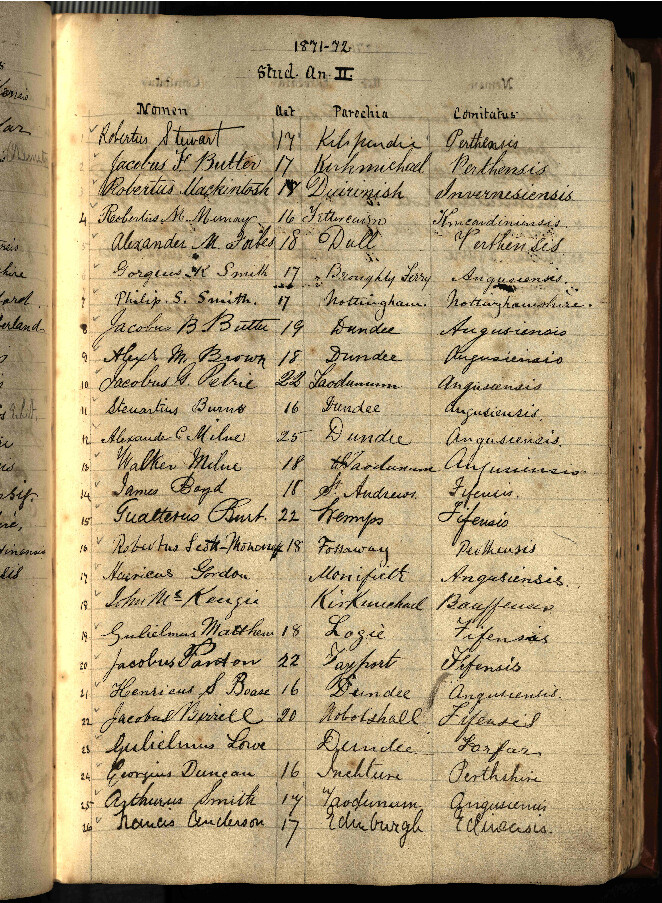 1871-72
Stud. An. II
Nomen Aet Parochia Comitatus
1 Robertus Stewart 17 Kilspindie Perthensis
2 Jacobus F. Butter 17 Kirkmichael Perthensis
3 Robertus Mackintosh 17 Duirinish Invernesiensis
4 Robertus M. Murray 16 Fettercairn Kincardinensis
5 Alexander M. Forbes 18 Dull Perthensis
6 Georgius K Smith 17 Broughty Ferry Angusiensis
7 Philip. S. Smith. 17 Nottingham. Nottinghamshire.
8 Jacobus B. 19 Dundee Angusiensis
9 Alexr M. Brown 18 Dundee Angusiensis
10 Jacobus G. Petrie 22 Taodunum Angusiensis
11 Steuartius Burns 16 Dundee Angusiensis.
12 Alexander C Milne 25 Dundee Angusiensis.
13 Walker Milne 18 Taodunum Angusiensis
14 James Boyd 18 St. Andrews. Fifensis.
15 Gualterus 22 Kemps Fifensis
16 Robertus 18 Fossaway Perthensis
17 Henricus Gordon Monifieth Angusiensis.
18 John Mc Kenzie Kirkmichael Banffensis
19 Gulielmus Matthew 18 Logie Fifensis
20 Jacobus 22 Tayport Fifensis
21 Henricus S Boase 16 Dundee Angusiensis.
22 Jacobus Birrell 20 Fifensis
23 Gulielmus Lowe Dundee. Forfar
24 Georgius Duncan 16 Inchture Perthshire
25 Arthurus Smith 17 Taodunum Angusiensis
26 Francis Anderson 17 Edinburgh Edinensis.